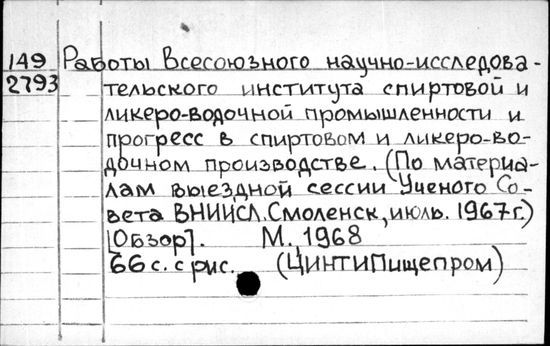 149 Работы Всесоюзного научно-исследова-
2793 тельского института спиртовой и
ликеро-водочной промышленности и
прогресс в спиртовом и ликеро-во-
дочном производстве. (По материа-
лам выездной сессии Ученого Со-
вета ВНИИСЛ. Смоленск, июль. 1967 г.)
[Обзор]. М., 1968
66 с. с рис. (ЦИНТИПищепром)